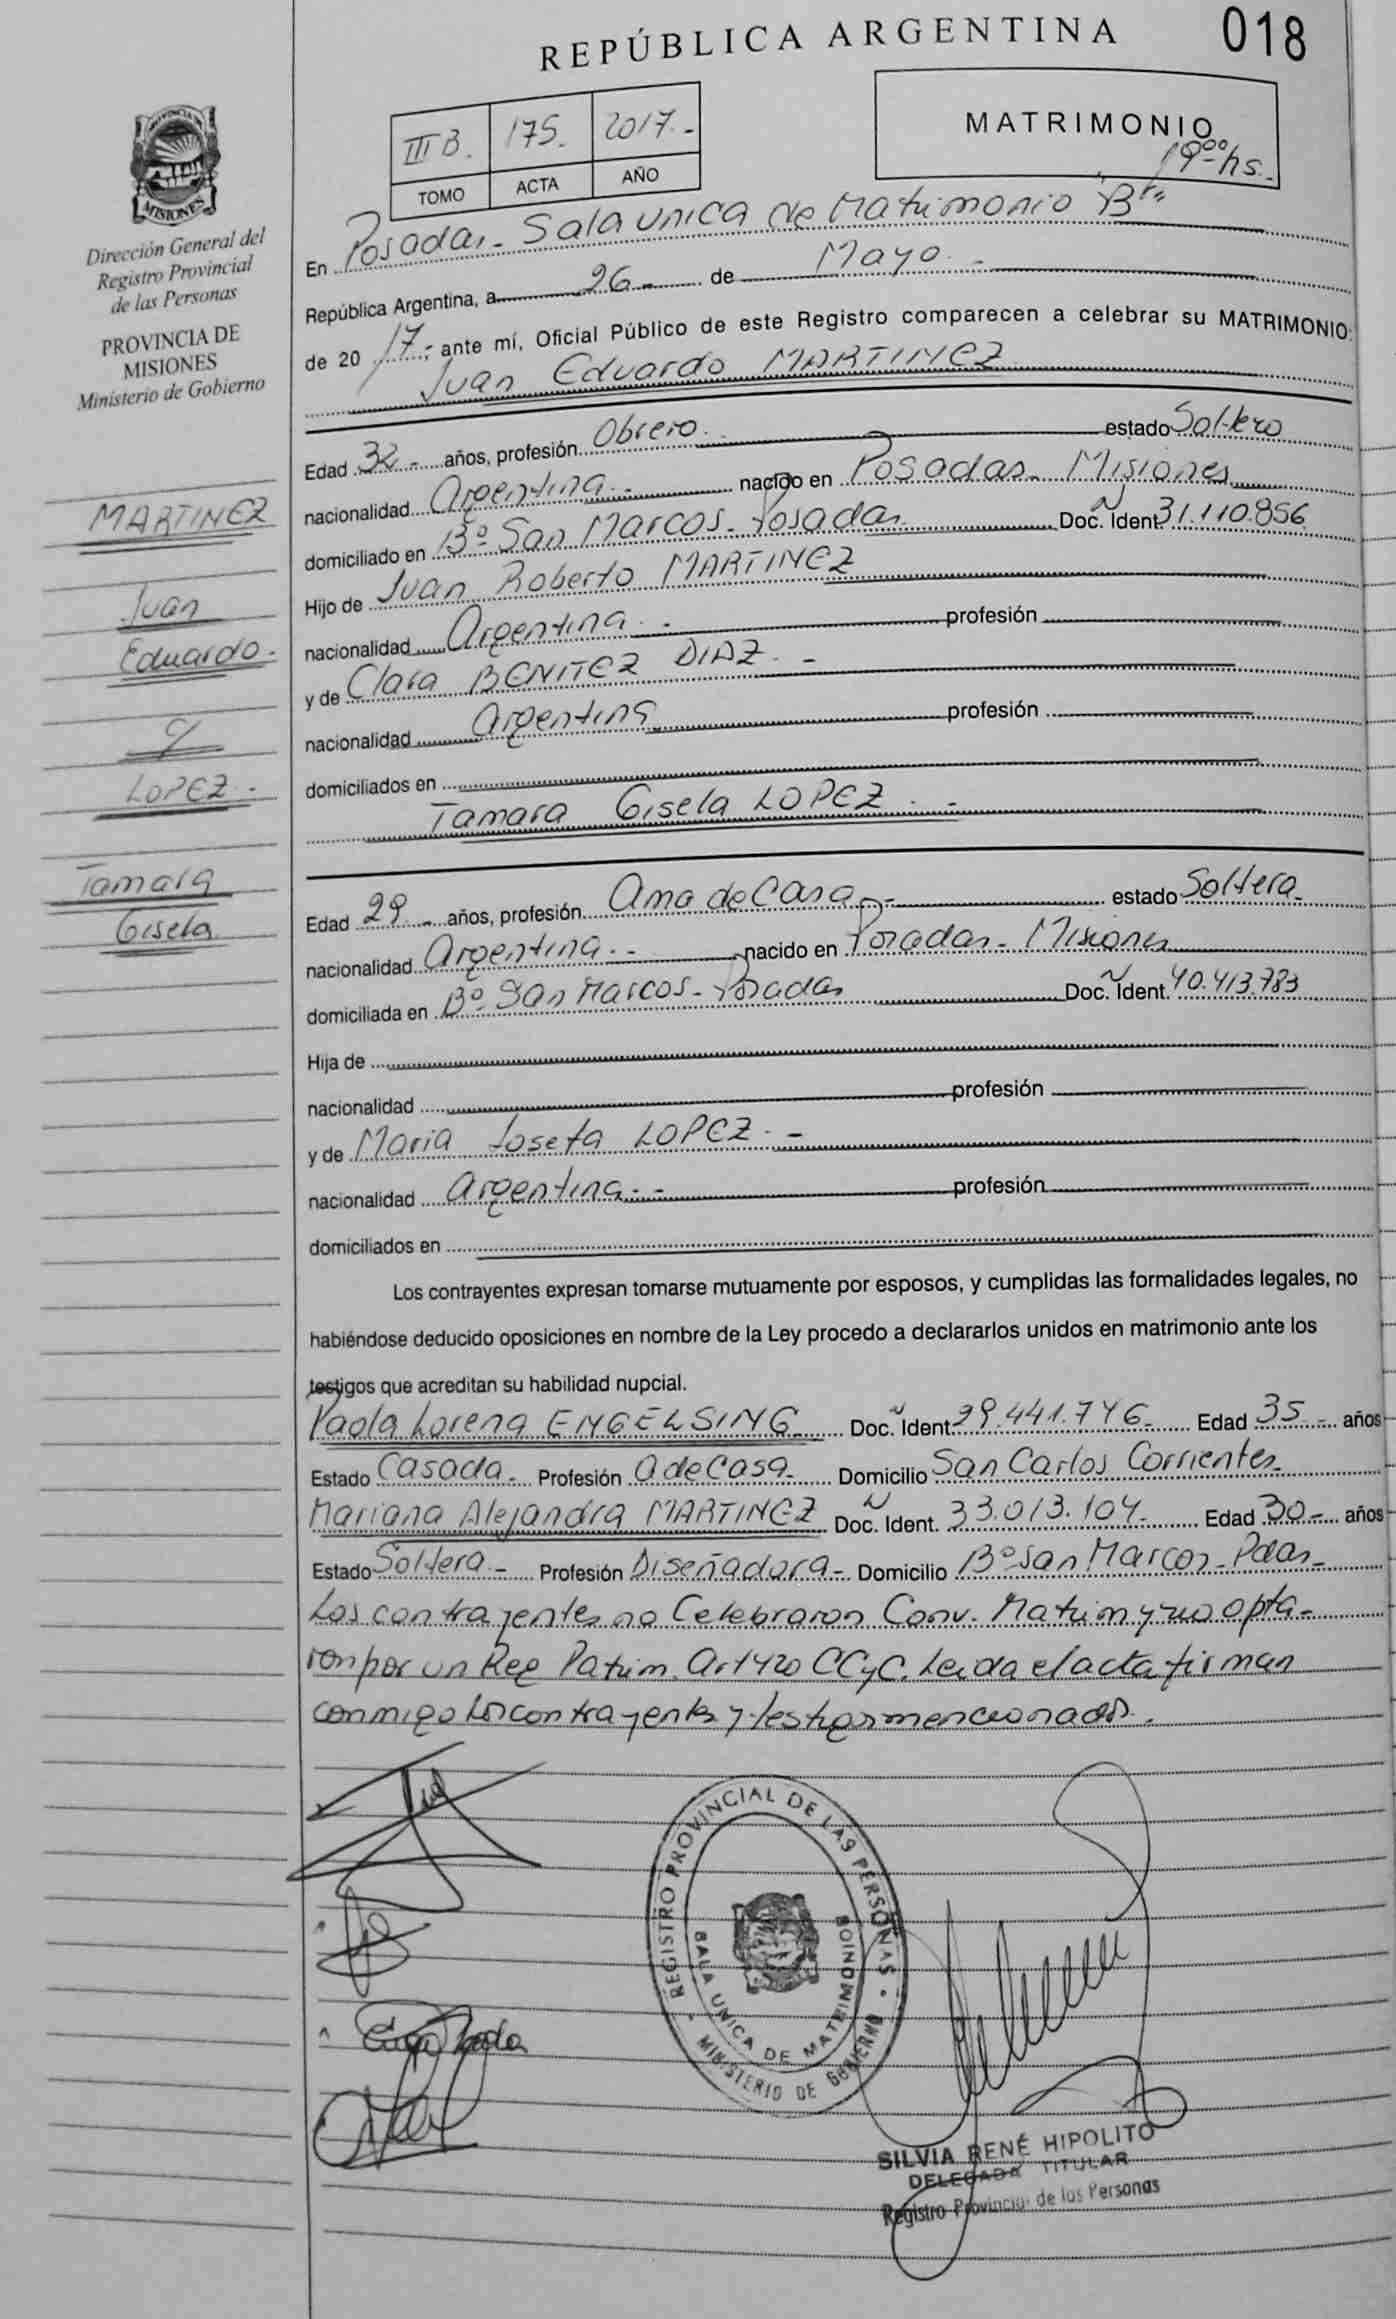 REPÚBLICA ARGENTINA
018
III B. 175. 2017.-
TOMO ACTA AÑO
MATRIMONIO
19ºº hs.-
PROVINCIA DE
MISIONES
Dirección General del
Registro Provincial
de las Personas
PROVINCIA DE
MISIONES
Ministerio de Gobierno
En Posadas - Sala unica de Matrimonio "B"
República Argentina, a 26 - de Mayo. -
de 20 17.-, ante mí, Oficial Público de este Registro comparecen a celebrar su MATRIMONIO:
Juan Eduardo MARTINEZ
Edad 32 - años, profesión Obrero. estado Soltero
nacionalidad Argentina.- nacido en Posadas - Misiones
domiciliado en Bº San Marcos - Posadas Doc. Ident. 31.110.856
Hijo de Juan Roberto MARTINEZ
nacionalidad Argentina. - profesión
y de Clara BENITEZ DIAZ. -
nacionalidad Argentina profesión
domiciliados en
Tamara Gisela LOPEZ. -
MARTINEZ
Juan
Eduardo.
y
LOPEZ -
Tamara
Gisela
Edad 29 - años, profesión Ama de Casa - estado Soltera
nacionalidad Argentina.- nacido en Posadas - Misiones
domiciliada en Bº San Marcos - Posadas Doc. Ident. 40.413.783
Hija de
nacionalidad profesión
y de Maria Josefa LOPEZ. -
nacionalidad Argentina.- profesión
domiciliados en
Los contrayentes expresan tomarse mutuamente por esposos, y cumplidas las formalidades legales, no
habiéndose deducido oposiciones en nombre de la Ley procedo a declararlos unidos en matrimonio ante los
testigos que acreditan su habilidad nupcial.
Paola Lorena ENGELSING Doc. Ident. 29.441.746 Edad 35 - años
Estado Casada - Profesión A de Casa - Domicilio San Carlos Corrientes
Mariana Alejandra MARTINEZ Doc. Ident. 33.013.104 Edad 30 - años
Estado Soltera - Profesión Diseñadora - Domicilio Bº San Marcos - Pdas -
Los contrayentes no Celebraron Conv. Matrim y no opta-
ron por un Reg Patrim. Art 420 CCyC. Leida el acta firman
conmigo los contrayentes y testigos mencionados.
REGISTRO PROVINCIAL DE LAS PERSONAS
SALA UNICA DE MATRIMONIOS
MINISTERIO DE GOBIERNO
SILVIA RENÉ HIPOLITO
DELEGADA TITULAR
Registro Provincial de las Personas